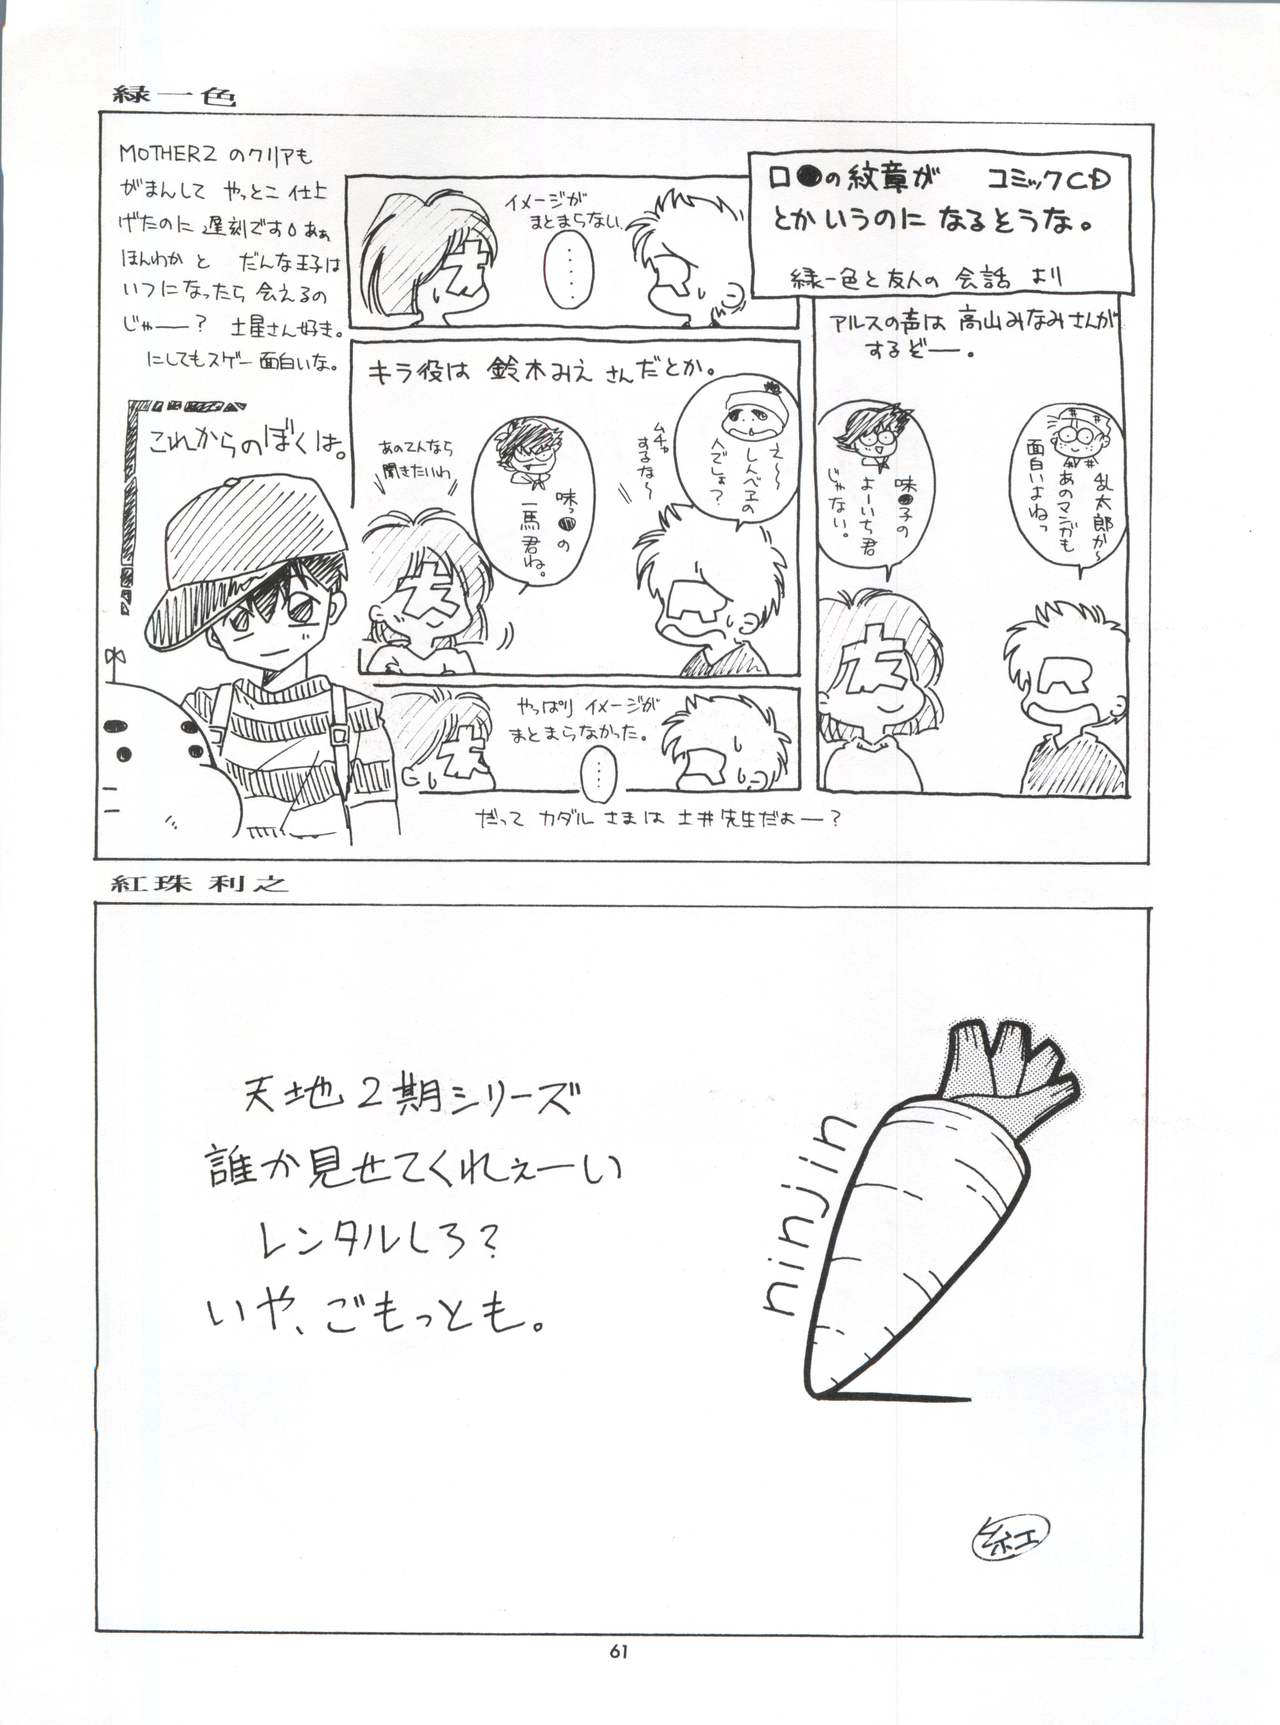 緑一色
MOTHER2 のクリアも
がまんして やっとこ 仕上
げたのに 遅刻です。あぁ
ほんわか と だんな王子は
いつになったら 会えるの
じゃー？ 土星さん好き。
にしてもスゲー 面白いな。
これからのぼくは。
ロ●の紋章が コミックCD
とかいうのに なるそうな。
緑一色と友人の 会話 より
アルスの声は 高山みなみさんが
するぞー。
乱太郎か〜
あのマンガも
面白いよねっ
味●子の
よーいち君
じゃない。
イメージが
まとまらない
……
キラ役は 鈴木みえ さんだとか。
え〜〜
しんべヱの
人でしょ？
ムチャ
するな〜
味っ●の
一馬君ね。
あのてんなら
聞きたいわ
やっぱり イメージが
まとまらなかった。
……
だって カダル さまは 土井先生だよー？
紅珠 利之
天地2期シリーズ
誰か見せてくれぇーい
レンタルしろ？
いや、ごもっとも。
ninjin
紅
61